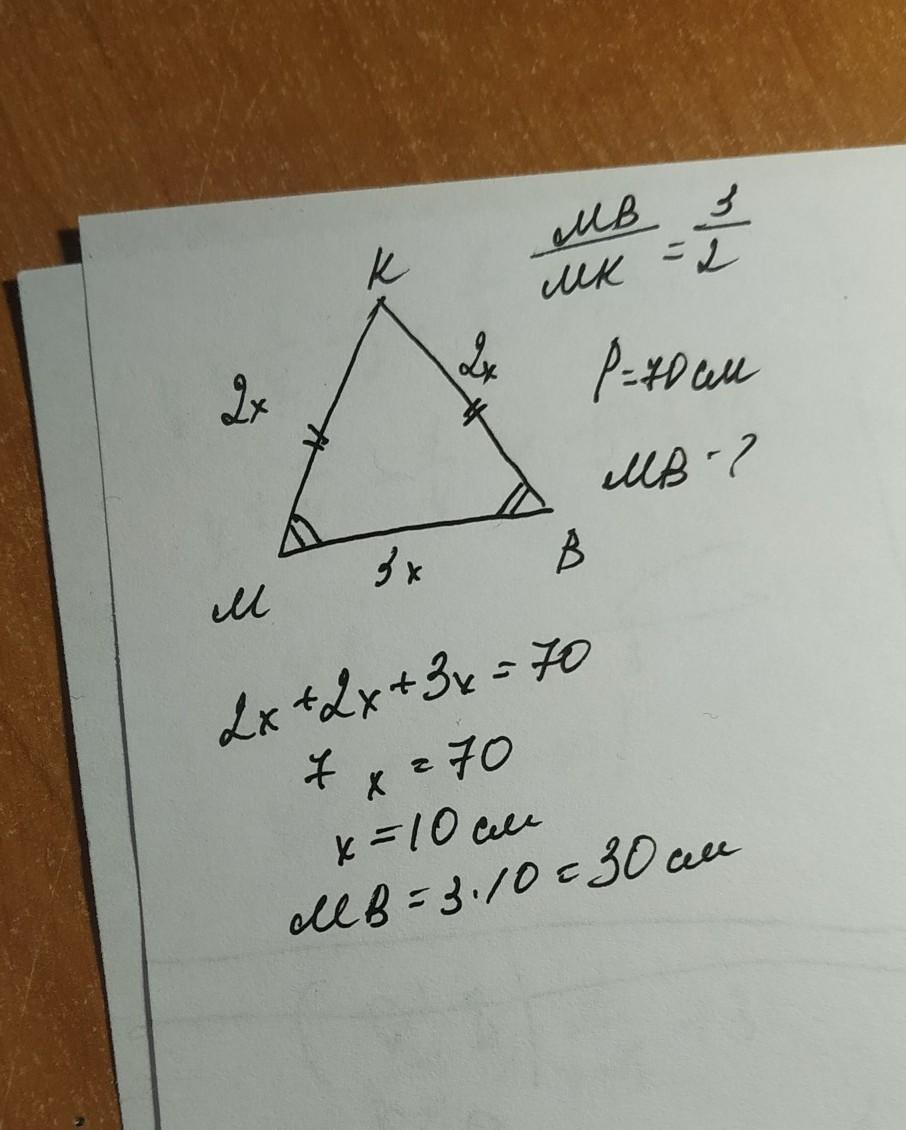 MB/MK = 3/2
K
2x
2x
P=70 см
MB - ?
3x
B
M
2x+2x+3x=70
7 x = 70
x = 10 см
MB = 3·10 = 30 см